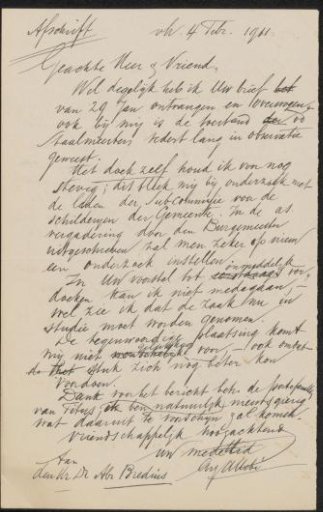 Afschrift vh 4 Febr. 1911.
Geachte Heer & Vriend,
Wel degelijk heb ik Uw brief
van 29 Jan ontvangen en
ook bij mij is de toestand der
Staalmeesters sedert lang in observatie
geweest.
Het doek zelf houd ik voor nog
stevig; dit bleek mij bij onderzoek met
de leden der Subcommissie voor de
schilderijen der Gemeente. In de as.
vergadering door den Burgemeester
uitgeschreven zal men zeker op nieuw
een onderzoek instellen.
In Uw voorstel tot onmiddelijk ver-
doeken kan ik niet medegaan,
wel zie ik dat de zaak nu in
studie moet worden genomen.
De tegenwoordige plaatsing komt
mij niet voor, ook omdat
het stuk zich nog beter kon
voordoen.
Dank voor het bericht betr. de
van Titus, ik ben natuurlijk nieuwsgierig
wat daaruit te voorschijn zal komen.
Vriendschappelijk hoogachtend
Uw
Aan
den Hr Dr Abr Bredius